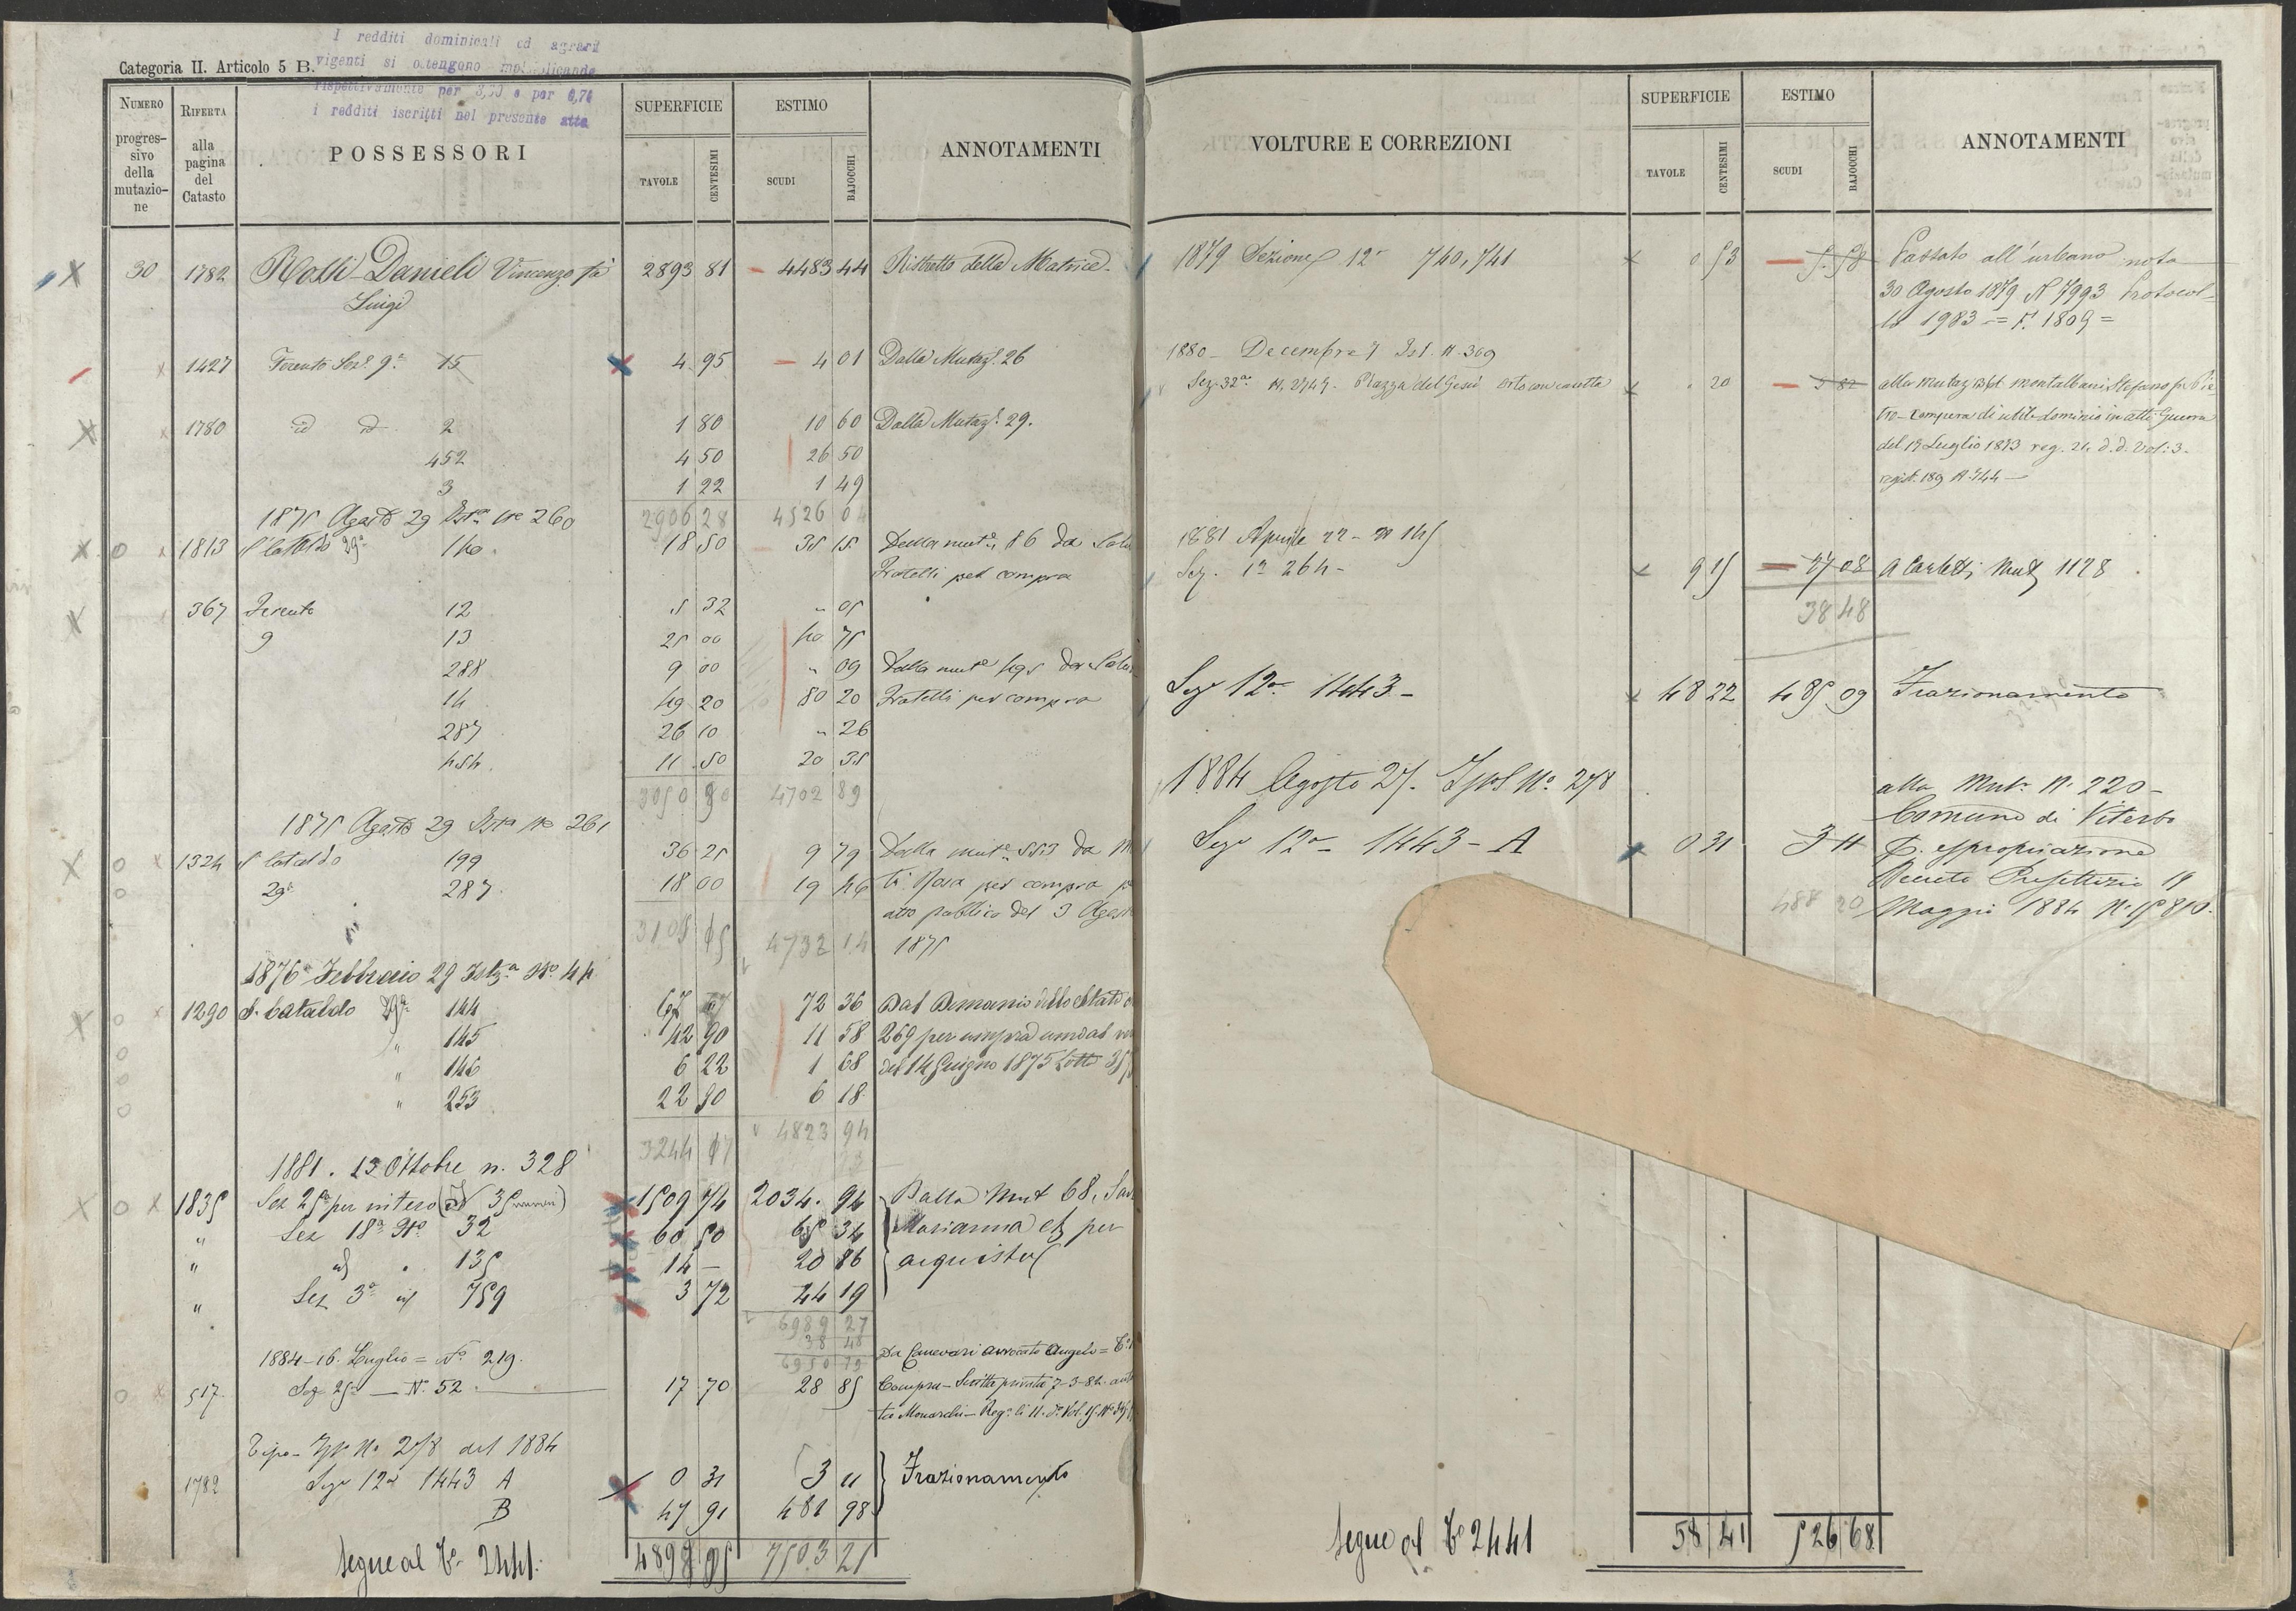 I redditi dominicali ed agrari
vigenti si ottengono moltiplicando
rispettivamente per
i redditi iscritti nel presente atto
Categoria II. Articolo 5 B.
NUMERO progressivo della mutazione
RIFERTA alla pagina del Catasto
POSSESSORI
SUPERFICIE
TAVOLE CENTESIMI
ESTIMO
SCUDI BAJOCCHI
ANNOTAMENTI
30 1782 Rossi-Danieli Vincenzo fu 2893 81 4483 44 Ristretto della Matrice
Luigi
1427 Ferento Sez. 9ª 15 4 95 4 01 Dalla Mutaz. 26
1780 id id 2 1 80 10 60 Dalla Mutaz. 29.
452 4 50 26 50
3 1 22 1 49
1875 Agosto 29 No 260 2906 28 4526 04
1813 S. Cataldo 29ª 140. 18 50 35 15 Dalla mut. 86 da
Fratelli per compra
367 Ferento 12 5 32 " 05
9 13 25 00 40 75
288 9 00 " 09 Dalla mut. 495 da
14 49 20 80 20 Fratelli per compra
287 26 10 " 26
454. 11 50 20 35
3050 90 4702 89
1875 Agosto 29 No 261
1324 S. Cataldo 199 36 25 9 79 Dalla mut. 553 da
29ª 287. 18 00 19 46 Rosa per compra
atto pubblico del 3 Agosto
3105 15 4732 14 1875
1876 Febbraio 29 Istza No. 44
1290 S. Cataldo 29ª 144 72 36 Dal Demanio dello Stato
" 145 42 90 11 58 269 per compra
" 146 6 22 1 68 del 14 Giugno 1875 Lotto
" 253 22 50 6 18
3244 17 4823 94
1881. 13 Ottobre n. 328
1835 Sez 25ª per intero (N 35 numeri) 1509 74 2034. 94 Dalla Mut 68,
" Sez 18ª No 32 60 50 65 34 Marianna per
" id " 135 14 — 20 86 acquisto
" Sez 3ª id 759 3 72 44 19
6989 27
38 48
6950 79
1884-16. Luglio = No 219. Da Canevari avvocato Angelo =
517. Sez 25ª — N. 52 17 70 28 85 Compra - Scritta privata 7-3-84.
1884
1782 Sez 12ª 1443 A 0 31 3 11 Frazionamento
B 47 91 481 98
Segue al 2441. 7503 21
VOLTURE E CORREZIONI
SUPERFICIE
TAVOLE CENTESIMI
ESTIMO
SCUDI BAJOCCHI
ANNOTAMENTI
1879 Sezione 12ª 740, 741 0 53 5.58 Passato all'urbano nota
30 Agosto 1879 N 7993 Protocol-
lo 1983 = 1809 =
1880 - Decembre 7 Ist. n. 309
Sez. 32ª N. 2749. Piazza del Gesù Orto con casetta . 20 5 82 alla Mutaz Montalbani Stefano fu Pie-
tro - Compera di utile dominio in atti Guerra
del 17 Luglio 1873 reg.
regist. 189 N 744 —
1881 Aprile 22 - N 145
Sez. 1ª 264 - 9 15 27 08 A Carletti Mut 1128
38 48
Sez 12ª 1443 - 48 22 485 09 Frazionamento
1884 Agosto 27. No. 278
alla Mut. N. 220 -
Comune di Viterbo
Sez 12ª - 1443 - A 0 31 3 11 P. espropriazione
Decreto Prefettizio 19
488 20 Maggio 1884
Segue al 2441 58 41 526 68